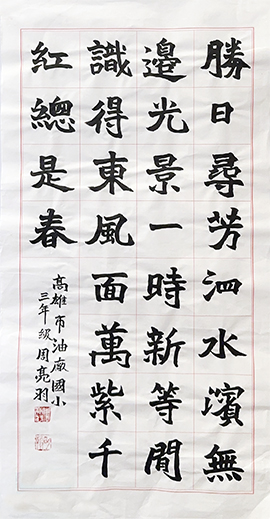 勝日尋芳泗水濱無
邊光景一時新等閒
識得東風面萬紫千
紅總是春
高雄市油廠國小
三年級周亮羽